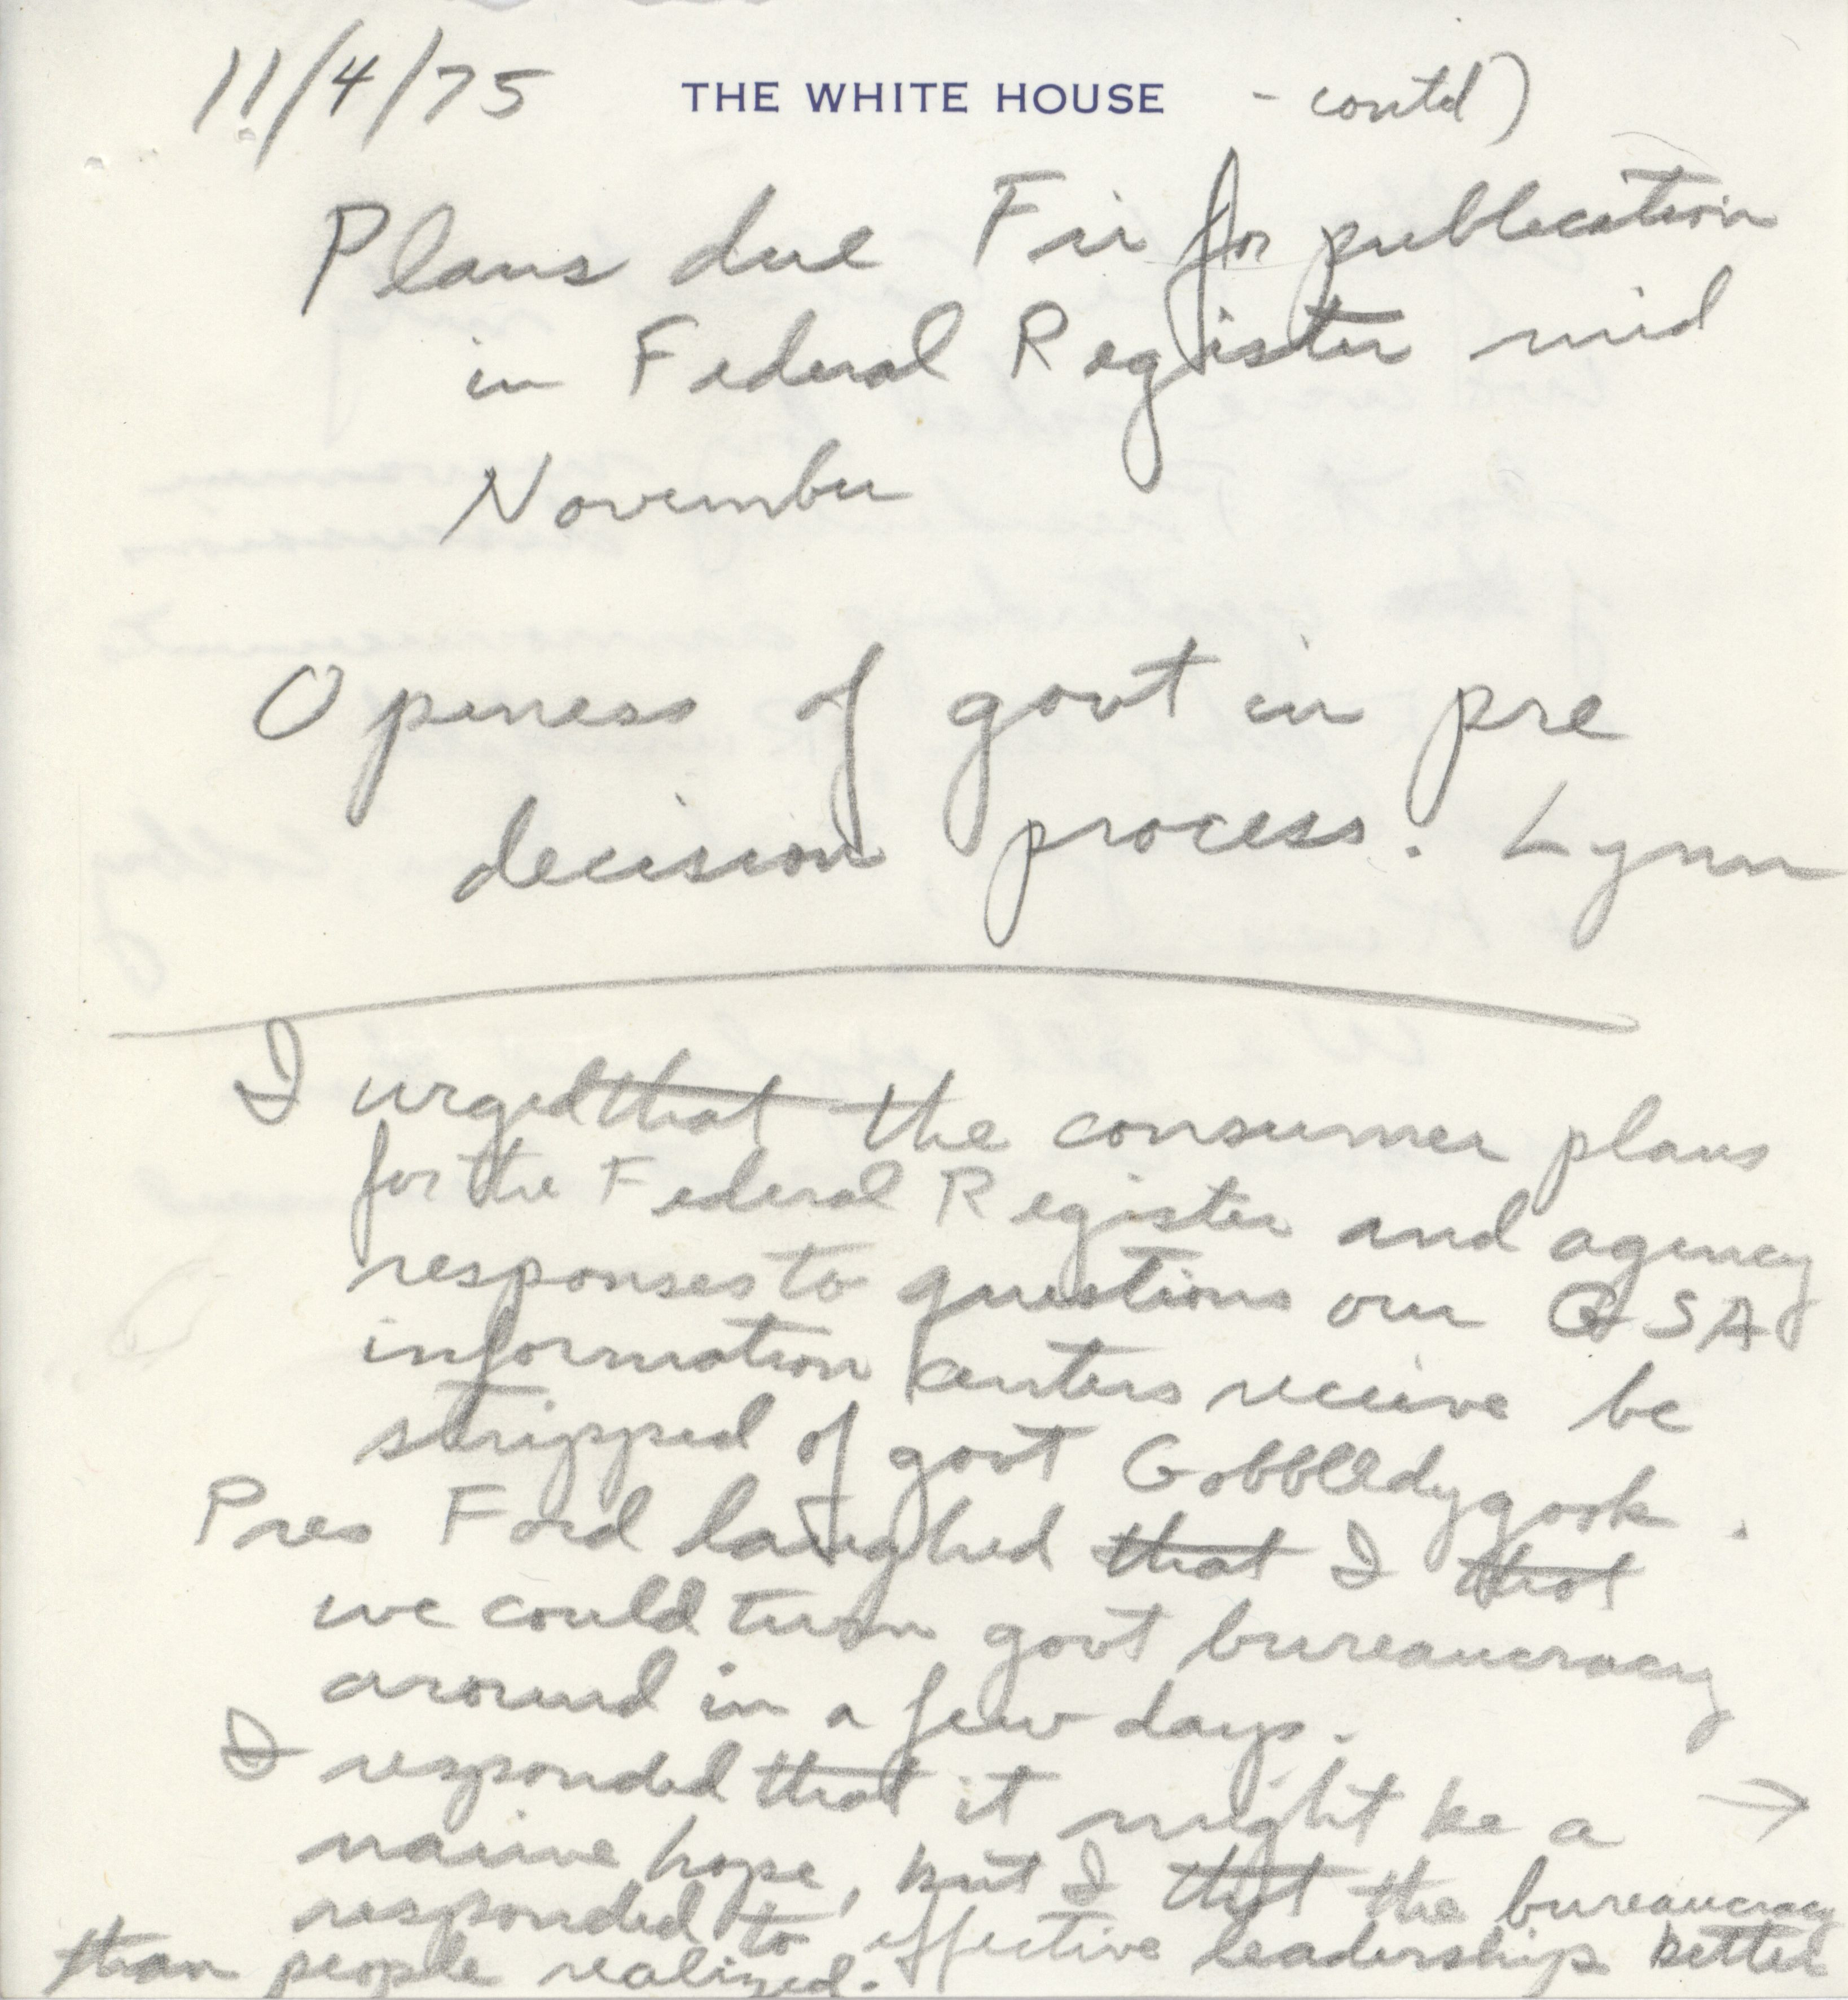 11/4/75 THE WHITE HOUSE - contd)
Plans due Fri for publication
in Federal Register mid
November
Openess of govt in pre
decision process. Lynn
I urged that the consumer plans
for the Federal Register and agency
responses to questions our GSA
information centers receive be
stripped of govt Gobbledygook.
Pres Ford laughed that I that
we could turn govt bureaucracy
around in a few days.
I responded that it might be a →
naiive hope, but I that the bureaucracy
responded to effective leadership better
than people realized.